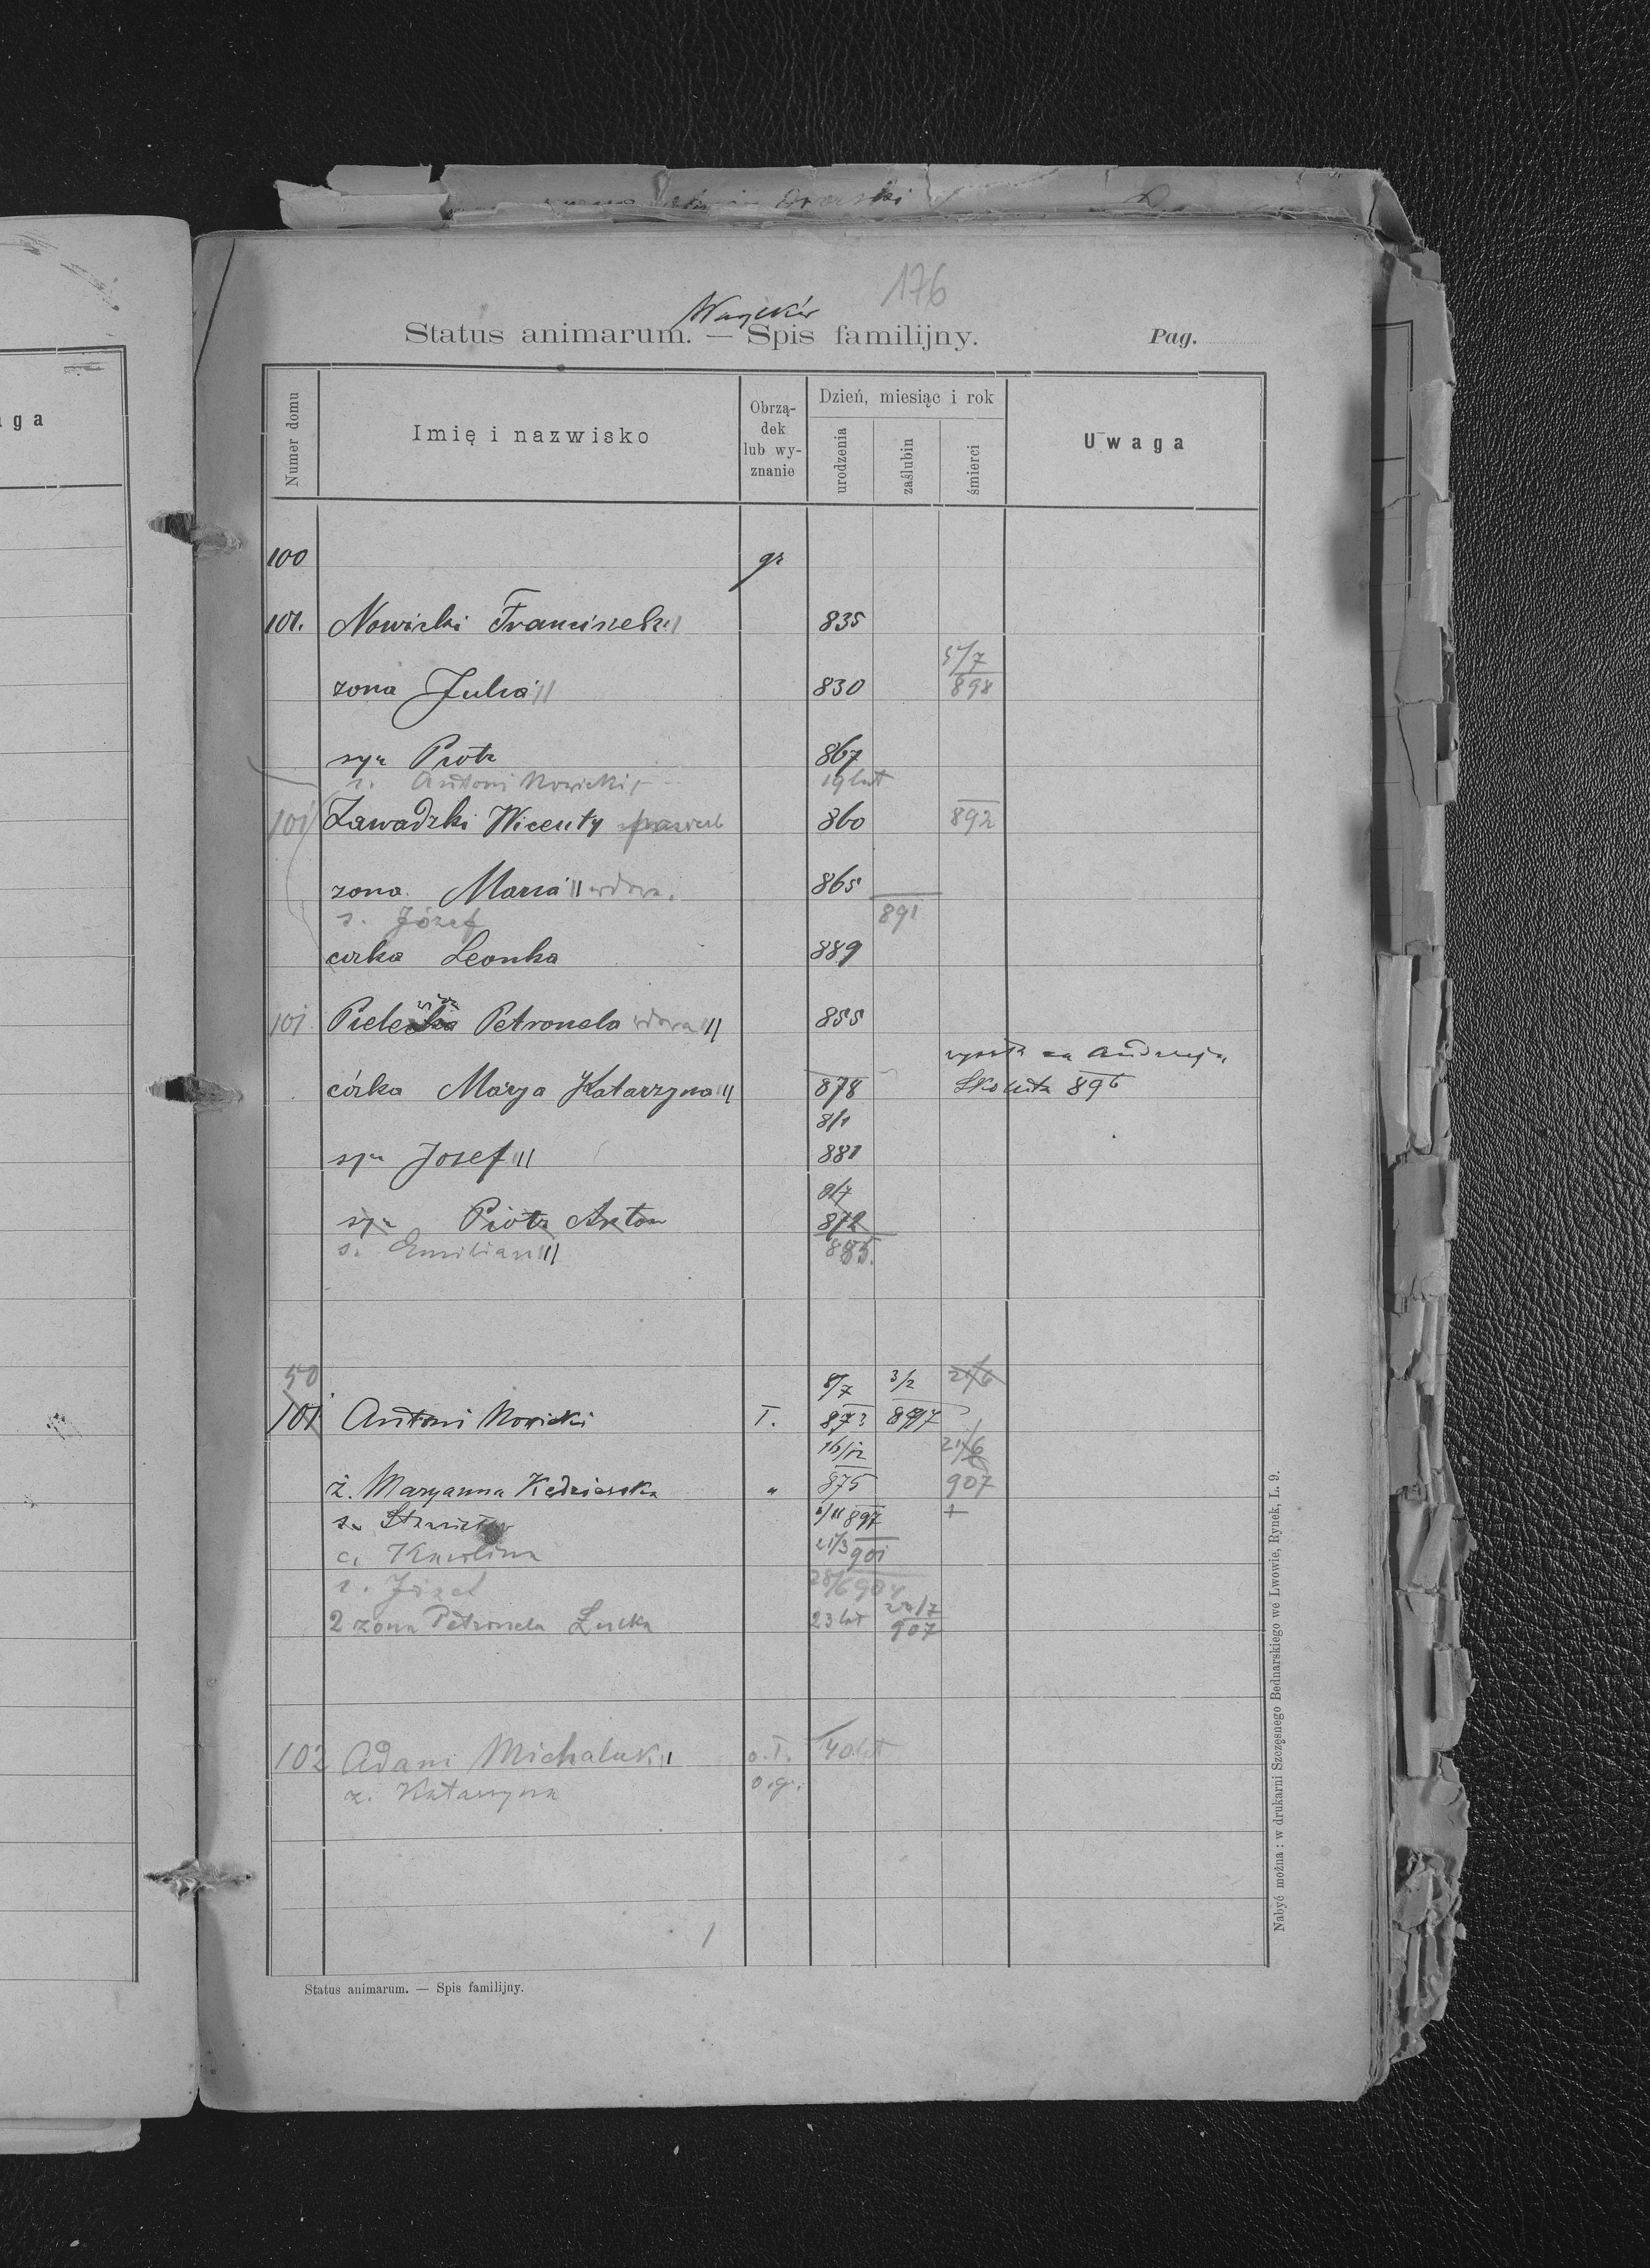 176
Status animarum. — Spis familijny.
Pag.
Numer domu
Imię i nazwisko
Obrzą-
dek
lub wy-
znanie
Dzień, miesiąc i rok
urodzenia
zaślubin
śmierci
Uwaga
100 gr
101. Nowicki Franciszek 835
żona Julia 830 898
syn Piotr 867
s. Antoni Nowicki 19 lat
101 Zawadzki Wicenty 860 892
żona Maria wdowa. 865
s. Józef 891
córka Leonka 889
101 Petronela wdowa 855
Andrzeja
córka Marya Katarzyna 878 896
8/1
syn Josef 881
8/7
syn Piotr Anton 872
s. Emilian 885.
50 8/7 3/2 21/6
101 Antoni Nowicki r. 873 897
16/12 21/6
ż. Maryanna Kędzierska " 875 907
897 +
c. Karolina 21/3 901
s. Józef 28/6 904
2 żona Petronela 23 lat 907
102 Adam Michaluk o. r. 40 lat
ż. Katarzyna o. g.
Status animarum. — Spis familijny.
Nabyć można: w drukarni Szczęsnego Bednarskiego we Lwowie, Rynek, L. 9.
aga